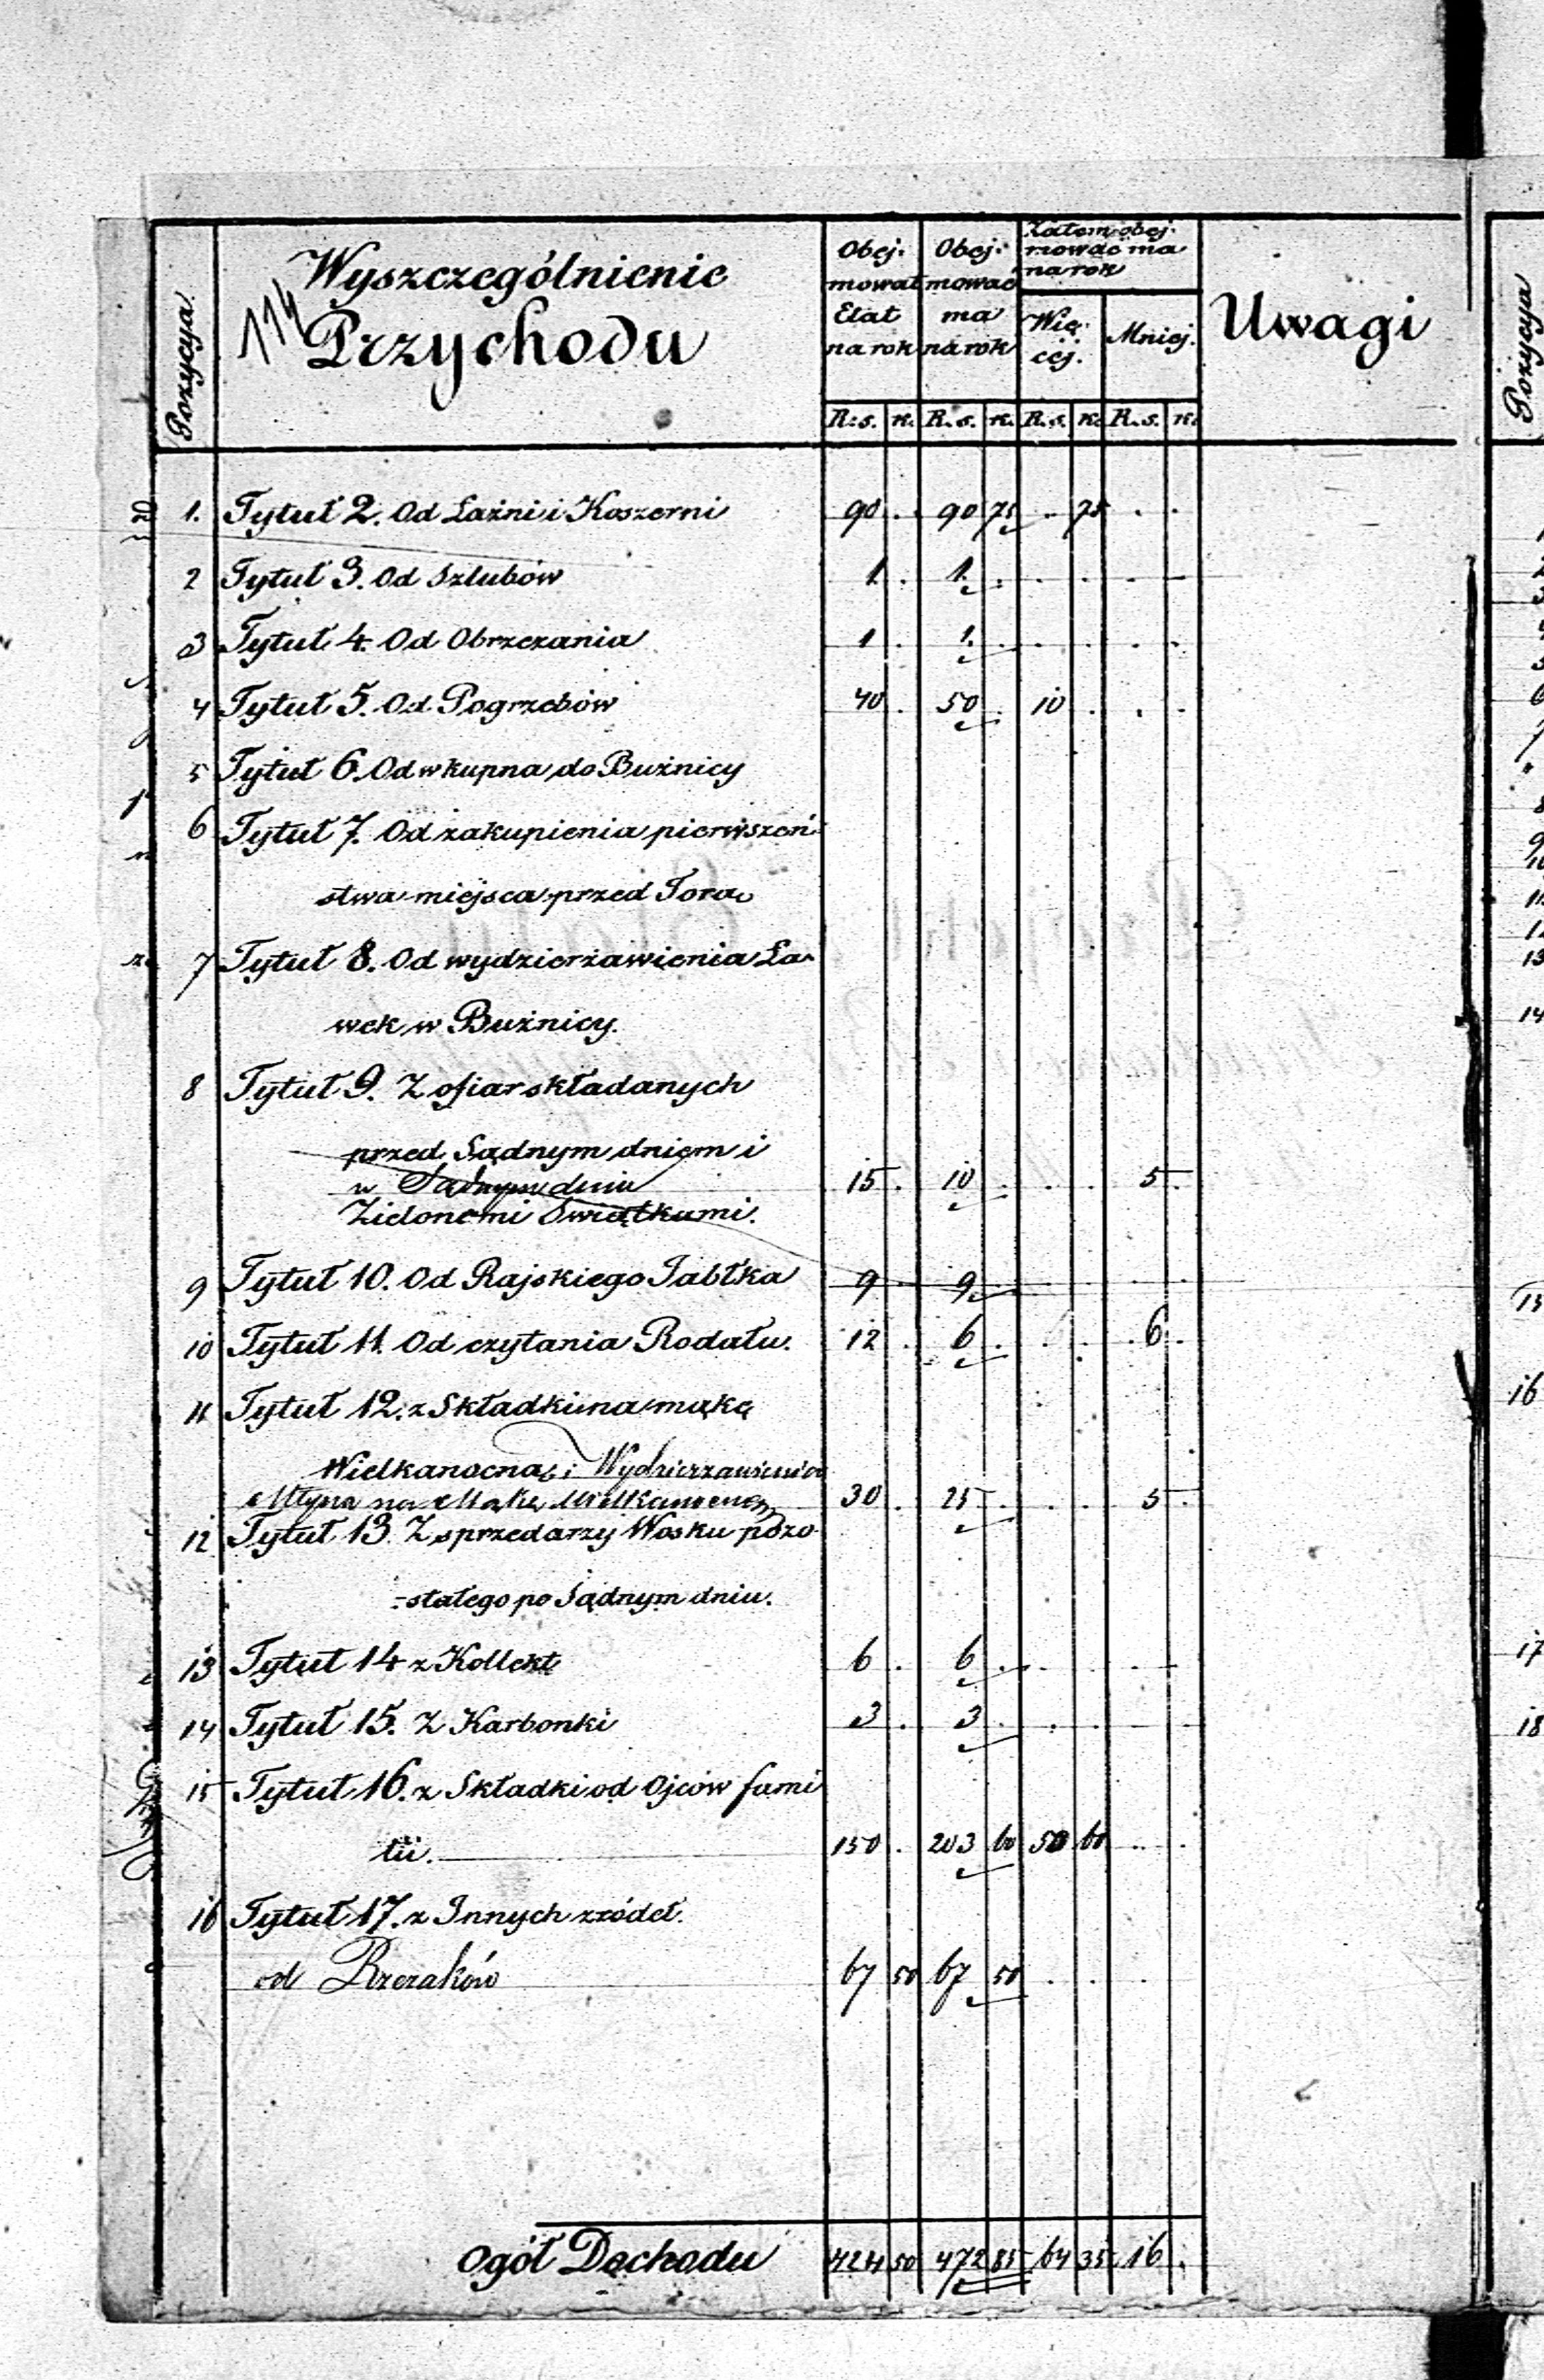 114
Pozycya
Wyszczególnienie
Przychodu
Obej-
mował
Etat
na rok
Obej-
mować
ma
na rok
Zatem obej-
mować ma
na rok
Wię-
cej.
Mniej.
Uwagi
R: s. k. R. s. k. R. s. k. R. s. k.
1. Tytuł 2. Od Łaźni i Koszerni 90 . 90 75 . 75 . .
2 Tytuł 3. Od Szlubów 1 . 1. . . . . .
3 Tytuł 4. Od Obrzezania 1 . 1. . . . . .
4 Tytuł 5. Od Pogrzebów 40 . 50 . 10 . . .
5 Tytuł 6. Od wkupna do Bużnicy
6 Tytuł 7. Od zakupienia pierwszeń-
stwa miejsca przed Torą
7 Tytuł 8. Od wydzierżawienia Ła-
wek w Bużnicy.
8 Tytuł 9. Z ofiar składanych
przed Sądnym dniem i
w Sądnym dniu 15 . 10 . . . 5 .
Zielonemi Swiątkami.
9 Tytuł 10. Od Rajskiego Jabłka 9 . 9 . . . . .
10 Tytuł 11. Od czytania Rodału. 12 . 6 . . . 6 .
11 Tytuł 12. z Składki na mąkę
Wielkanocną i Wydzierzawienia
Młyna na Mąkę Wielkanocną 30 . 25 . . . 5 .
12 Tytuł 13. Z sprzedarzy Wosku pozo-
-stałego po Sądnym dniu.
13 Tytuł 14 z Kollekt 6 . 6 . . . . .
14 Tytuł 15. Z Karbonki 3 . 3 . . . . .
15 Tytuł 16. z Składki od Ojców fami
lii. 150 . 203 60 53 60 . .
16 Tytuł 17. z Innych źródeł.
od Rzezaków 67 50 67 50 . . .
Ogół Dochodu 424 50 472 85 64 35 16 .
Pozycya